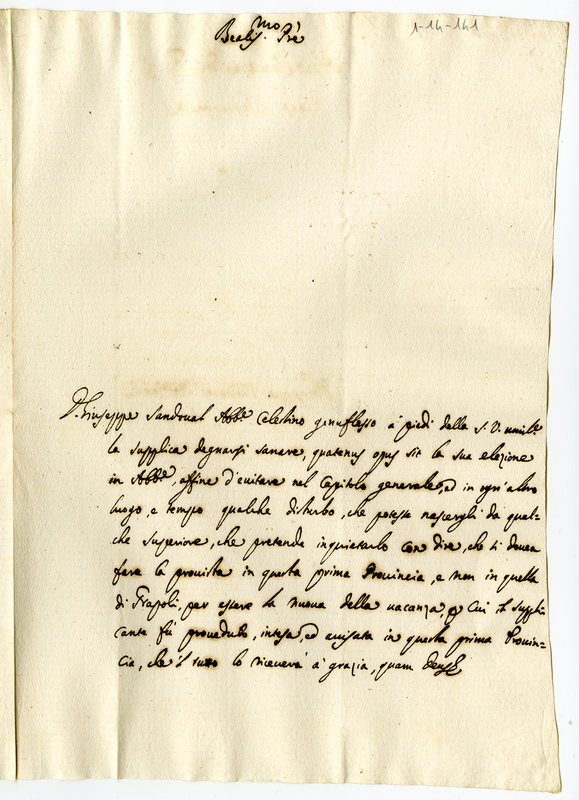 1-14-141
Beatis.mo Prẽ
D. Giuseppe Sandoval Abb.e Celestino genuflesso a' piedi della S. V. umilte.
la supplica degnarsi sanare, quatenus opus sit la sua elezione
in Abb.e, affine d'evitare nel Capitolo generale, ed in ogn'altro
luogo, e tempo qualche disturbo, che potesse nascergli da qual=
che superiore, che pretenda inquietarlo con dire, che si dovea
fare la provista in questa prima Provincia, e non in quella
di Napoli, per essere la nuova della vacanza, p cui il suppli=
cante fù proveduto, intesa, ed avisata in questa prima Provin=
cia, che il tutto lo riceverà à grazia, quam Deus &